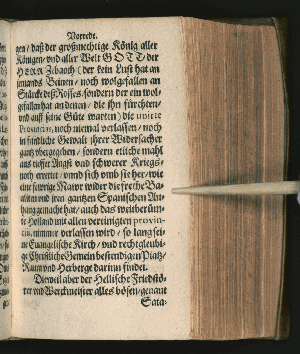 Vorredt.
gen / daß der großmechtige König aller
Königen / vnd aller Welt GOTT / der
HErr Zebaoth (der kein Lust hat an
jemands Beinen / noch wolgefallen an
Stärcke deß Rosses / sondern der ein wol-
gefallen hat an denen / die jhn fürchten /
vnd auff seine Güte warten) die unirte
Provincis, noch niemal verlassen / noch
in findliche Gewalt jhrer Widersacher
gantz vbergegeben / sondern etliche mahl
auß tieffer Angst vnd schwerer Kriegs-
noth errettet / vnnd sich vmb sie her / wie
eine fewrige Mawr wider die freche Ba-
vnd jren gantzen Spanischen An-
hang gemacht hat / auch das weitberüm-
te Holland mit allen vereinigten provin-
ciis, nimmer verlassen wird / so lang sei-
ne Euangelische Kirch / vnd rechtgleubi-
ge Christliche Gemein bestendigen Platz /
Raum vnd Herberge darinn findet.
Dieweil aber der Hellische Friedstö-
rer vnd Werckmeister alles bösen / genant
Sata-